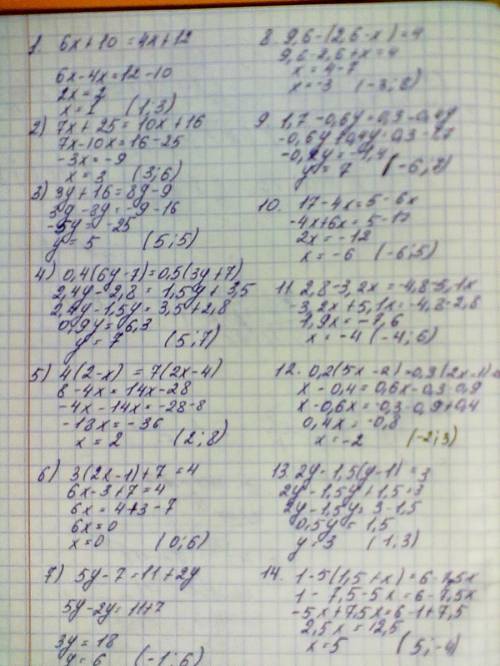 1. 6x+10=4x+12
6x-4x=12-10
2x=2
x=1 (1;3)
2) 7x+25=10x+16
7x-10x=16-25
-3x=-9
x=3 (3;6)
3) 3y+16=8y-9
3y-8y=-9-16
-5y=-25
y=5 (5;5)
4) 0,4(6y-7)=0,5(3y+7)
2,4y-2,8=1,5y+3,5
2,4y-1,5y=3,5+2,8
0,9y=6,3
y=7 (5;7)
5) 4(2-x)=7(2x-4)
8-4x=14x-28
-4x-14x=-28-8
-18x=-36
x=2 (2;8)
6) 3(2x-1)+7=4
6x-3+7=4
6x=4+3-7
6x=0
x=0 (0;6)
7) 5y-7=11+2y
5y-2y=11+7
3y=18
y=6 (-1;6)
8. 9,6-(2,6-x)=4
9,6-2,6+x=4
x=4-7
x=-3 (-3;8)
9. 1,7-0,6y=0,3-0,4y
-0,6y+0,4y=0,3-1,7
-0,2y=-1,4
y=7 (-6;8)
10. 17-4x=5-6x
-4x+6x=5-17
2x=-12
x=-6 (-6;5)
11. 2,8-3,2x=-4,8-5,1x
-3,2x+5,1x=-4,8-2,8
1,9x=-7,6
x=-4 (-4;6)
12. 0,2(5x-2)=0,3(2x-1)
x-0,4=0,6x-0,3-0,9
x-0,6x=-0,3-0,9+0,4
0,4x=-0,8
x=-2 (-2;3)
13. 2y-1,5(y-1)=3
2y-1,5y+1,5=3
2y-1,5y=3-1,5
0,5y=1,5
y=3 (1;3)
14. 1-5(1,5+x)=6-7,5x
1-7,5-5x=6-7,5x
-5x+7,5x=6-1+7,5
2,5x=12,5
x=5 (5;-4)